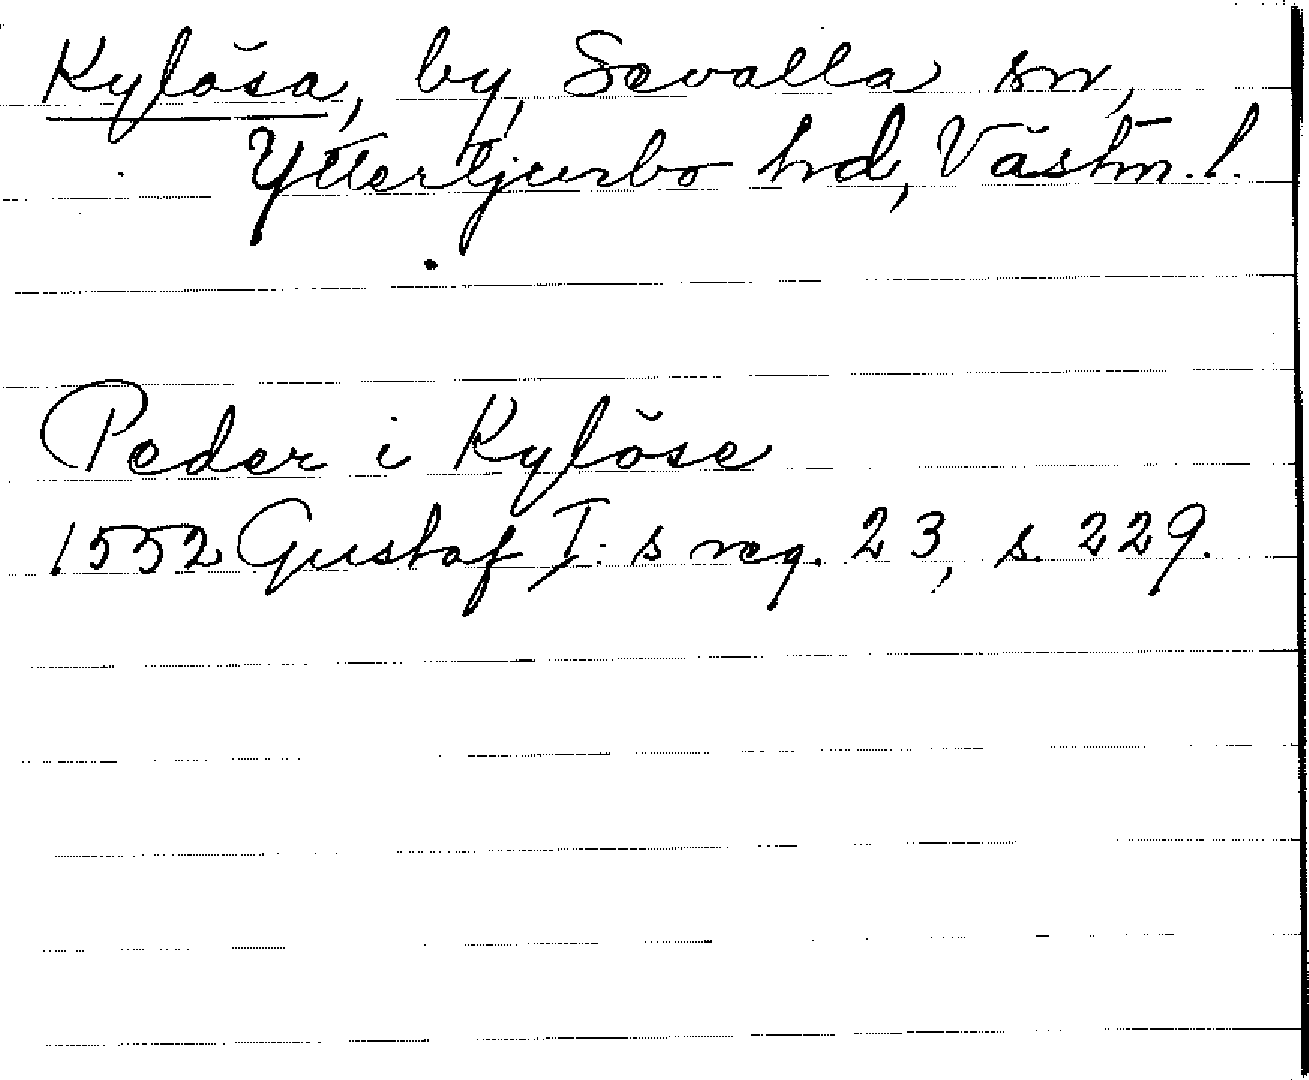 Kylösa, by, Sevalla sn,
Yttertjurbo hd, Västm. l.
Peder i Kylöse
1552 Gustaf I: s reg. 23, s. 229.